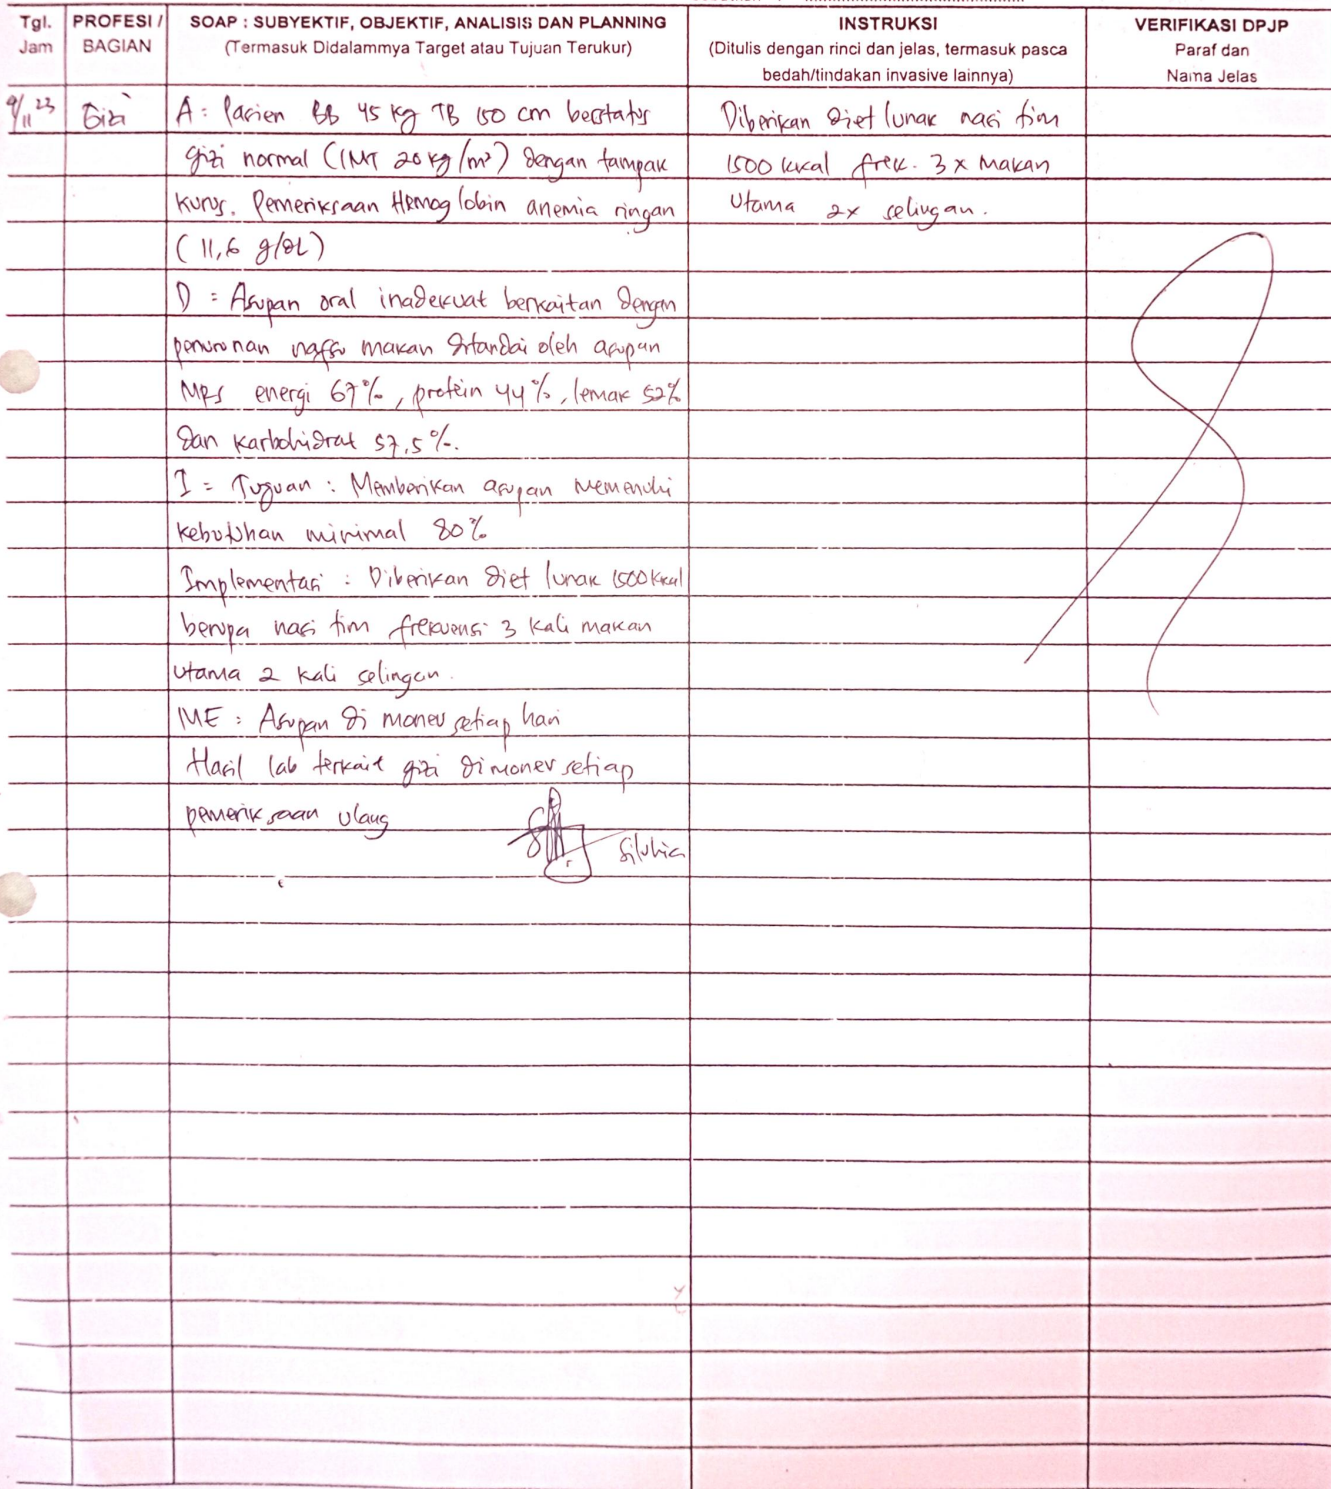 Tgl. Jam
PROFESI / BAGIAN
SOAP : SUBYEKTIF, OBJEKTIF, ANALISIS DAN PLANNING
(Termasuk Didalammya Target atau Tujuan Terukur)
INSTRUKSI
(Ditulis dengan rinci dan jelas, termasuk pasca
bedah/tindakan invasive lainnya)
VERIFIKASI DPJP
Paraf dan
Nama Jelas
9/11 23
Gizi
A : Pasien BB 45 kg TB 150 cm berstatus
gizi normal (IMT 20 kg/m²) dengan tampak
kurus. Pemeriksaan Hemoglobin anemia ringan
(11,6 g/dL)
D : Asupan oral inadekuat berkaitan dengan
penurunan nafsu makan ditandai oleh asupan
MRS energi 67%, protein 44%, lemak 52%
dan karbohidrat 57,5%.
I : Tujuan : Memberikan asupan memenuhi
kebutuhan minimal 80%
Implementasi : Diberikan diet lunak 1500 kkal
berupa nasi tim frekuensi 3 kali makan
utama 2 kali selingan.
ME : Asupan di monev setiap hari
Hasil lab terkait gizi di monev setiap
pemeriksaan ulang
Diberikan diet lunak nasi tim
1500 kkal frek. 3 x makan
utama 2x selingan.